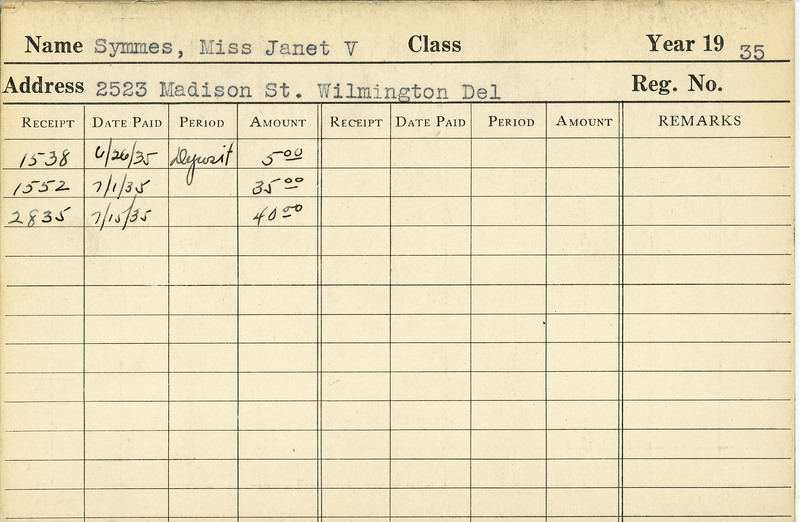 Name Symmes, Miss Janet V Class Year 19 35
Address 2523 Madison St. Wilmington Del Reg. No.
RECEIPT DATE PAID PERIOD AMOUNT RECEIPT DATE PAID PERIOD AMOUNT REMARKS
1538 6/26/35 Deposit 5.00
1552 7/1/35 35.00
2835 7/15/35 40.00